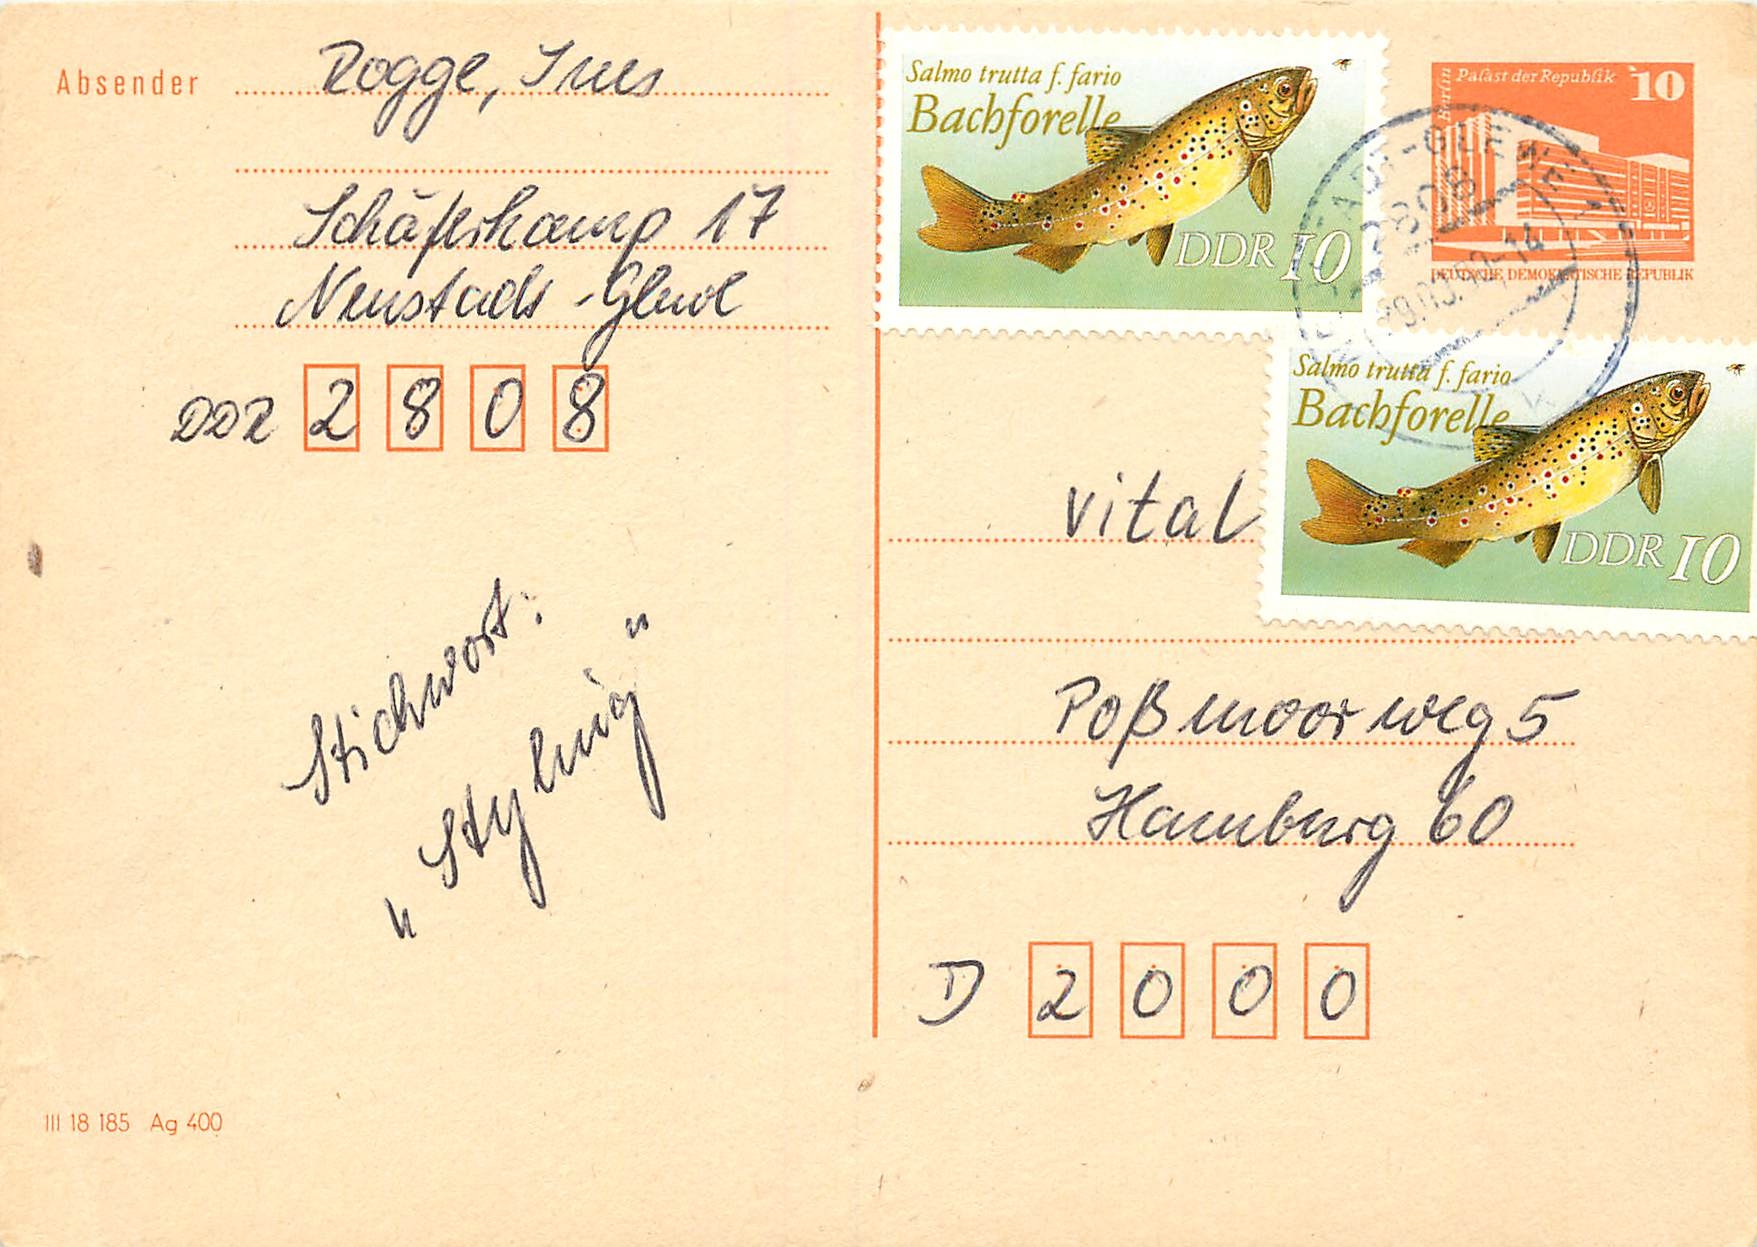 Absender Rogge, Ines
Schäferkamp 17
Neustadt-Glewe
DDR 2808
Stichwort:
"Styling"
III 18 185 Ag 400
Salmo trutta f. fario
Bachforelle
DDR 10
Berlin Palast der Republik 10
DEUTSCHE DEMOKRATISCHE REPUBLIK
NEUSTADT-GLEWE
2808
Salmo trutta f. fario
Bachforelle
DDR 10
vital
Poßmoorweg 5
Hamburg 60
D 2000